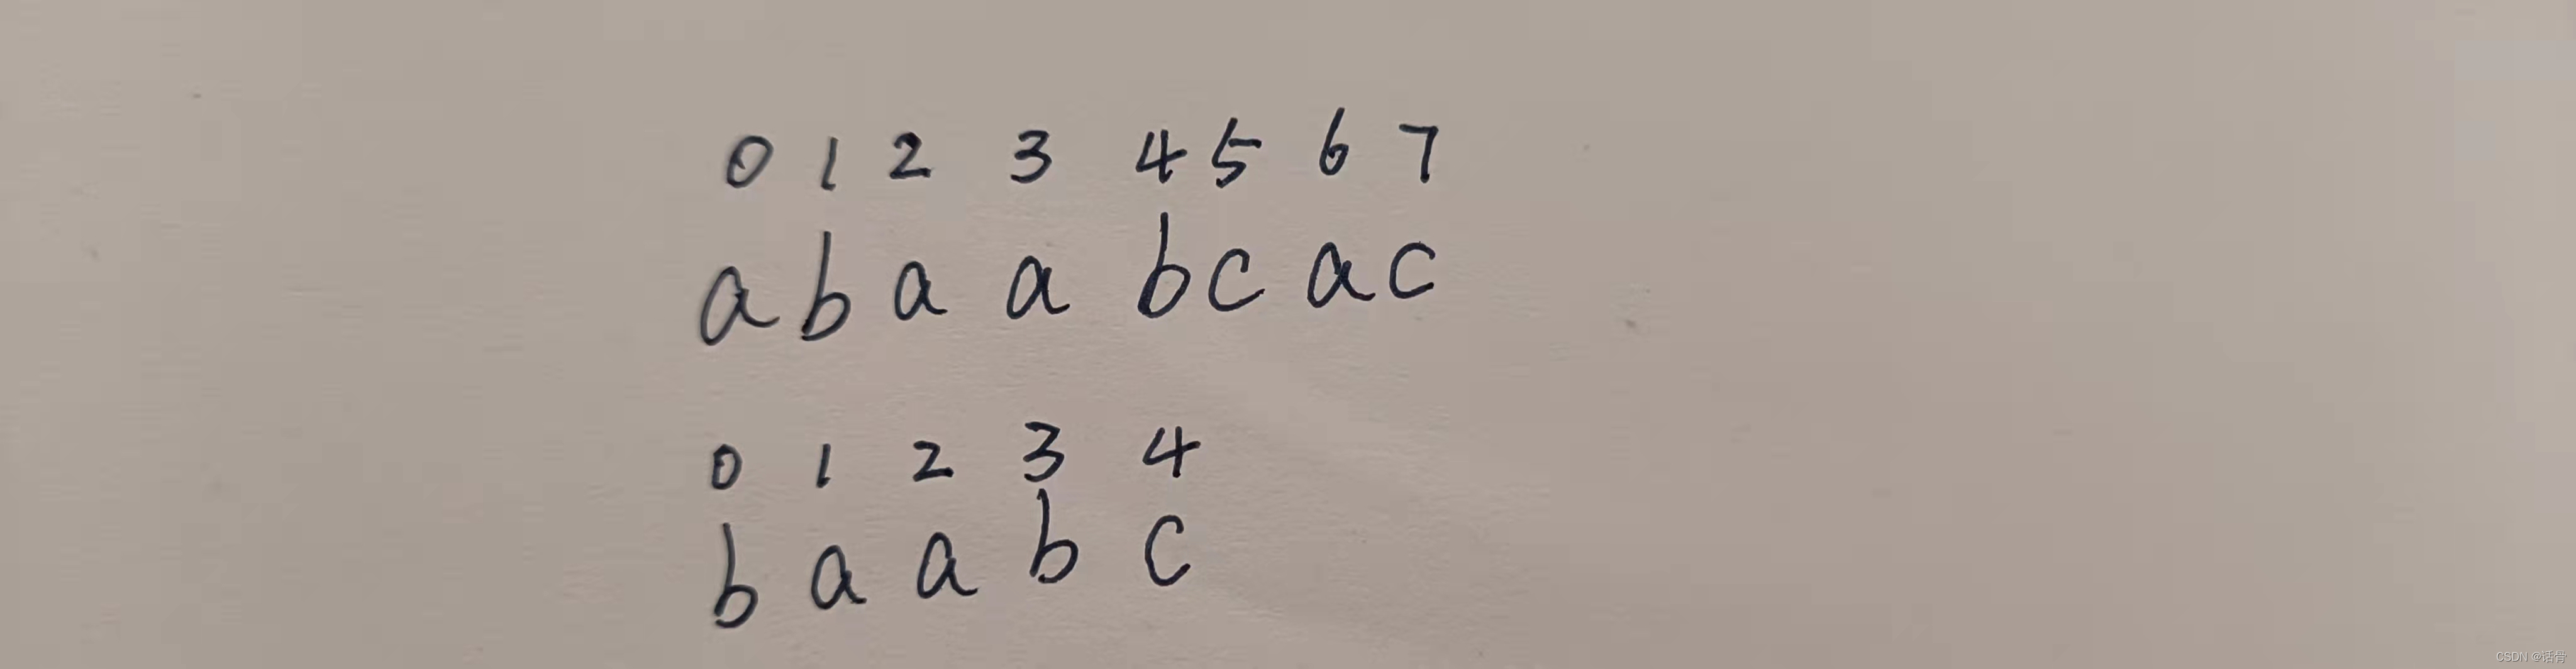 0 1 2 3 4 5 6 7
a b a a b c a c
0 1 2 3 4
b a a b c
CSDN @话骨